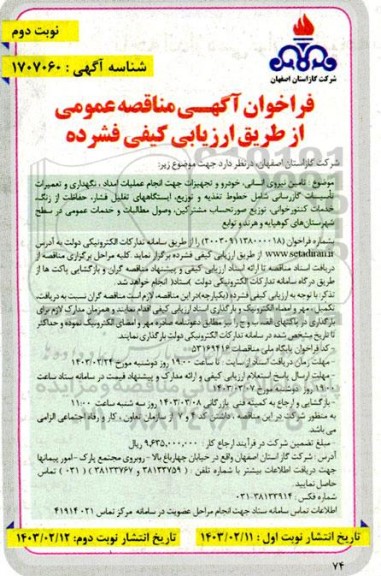 نوبت دوم
شناسه آگهی : ۱۷۰۷۰۶۰
شرکت گاز استان اصفهان
فراخوان آگهی مناقصه عمومی
از طریق ارزیابی کیفی فشرده
شرکت گاز استان اصفهان، درنظر دارد جهت موضوع زیر:
موضوع : تامین نیروی انسانی، خودرو و تجهیزات جهت انجام عملیات امداد ، نگهداری و تعمیرات
تأسیسات گازرسانی شامل خطوط تغذیه و توزیع، ایستگاههای تقلیل فشار، حفاظت از زنگ،
خدمات کنتورخوانی، توزیع صورتحساب مشترکین، وصول مطالبات و خدمات عمومی در سطح
شهرستان‌های کوهپایه و هرند و توابع
بشماره فراخوان (۲۰۰۳۰۹۱۱۳۸۰۰۰۰۱۸) را از طریق سامانه تدارکات الکترونیکی دولت به آدرس
www.setadiran.ir از طریق ارزیابی کیفی فشرده برگزار نماید. کلیه مراحل برگزاری مناقصه از
دریافت اسناد مناقصه تا ارائه اسناد ارزیابی کیفی و پیشنهاد مناقصه گران و بازگشایی پاکت ها از
طریق درگاه سامانه تدارکات الکترونیکی دولت (ستاد) انجام خواهد شد.
تذکر: با توجه به ارزیابی کیفی فشرده (یکپارچه) در این مناقصه، لازم است مناقصه گران نسبت به دریافت،
تکمیل، مهر و امضای الکترونیک و بارگذاری اسناد ارزیابی کیفی اقدام نمایند و همزمان مدارک لازم برای
بارگذاری در پاکتهای الف، ب و ج را نیز مطابق دعوتنامه صادره مهر و امضای الکترونیک نموده و حداکثر
تا تاریخ مشخص شده در سامانه تدارکات الکترونیکی دولت بارگذاری نمایند.
کد فراخوان پایگاه ملی مناقصات: ۵۳۱۶۹۴۱۶
- مهلت زمان دریافت اسناد از سایت : تا ساعت ۱۹:۰۰ روز دوشنبه مورخ ۱۴۰۳/۰۲/۲۴
- مهلت ارسال پاسخ استعلام ارزیابی کیفی و ارائه مدارک و پیشنهاد قیمت در سامانه ستاد ساعت
۱۹:۰۰ روز دوشنبه مورخ ۱۴۰۳/۰۳/۰۷
- بازگشایی و ارجاع به کمیته فنی بازرگانی ۱۴۰۳/۰۳/۰۸ روز سه شنبه ساعت ۱۱:۰۰
به منظور شرکت در این مناقصه ، داشتن کد ۴ و ۷ از سازمان تعاون ، کار و رفاه اجتماعی الزامی
می باشد.
- مبلغ تضمین شرکت در فرآیند ارجاع کار : ۹,۶۳۵,۰۰۰,۰۰۰ ریال
آدرس : شرکت گاز استان اصفهان واقع در خیابان چهارباغ بالا - روبروی مجتمع پارک - امور پیمانها
جهت دریافت اطلاعات بیشتر با شماره تلفن : ( ۳۸۱۳۳۷۵۹ و ۳۸۱۳۳۷۶۷ ) ( ۰۳۱ ) تماس
حاصل نمایید.
شماره فکس : ۰۳۱-۳۸۱۳۳۹۱۴
اطلاعات تماس سامانه ستاد جهت انجام مراحل عضویت در سامانه مرکز تماس ۴۱۹۱۴۰۲۱
تاریخ انتشار نوبت اول : ۱۴۰۳/۰۲/۱۱
تاریخ انتشار نوبت دوم: ۱۴۰۳/۰۲/۱۲
۷۴